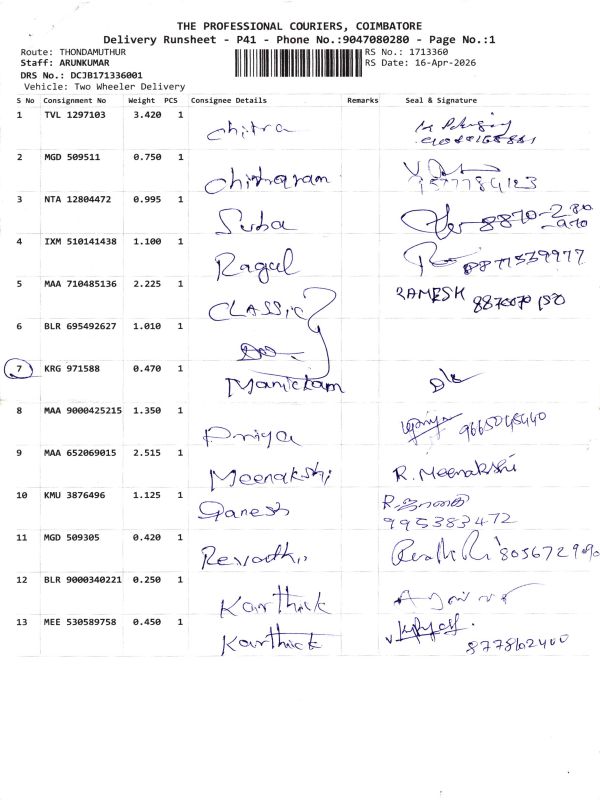 THE PROFESSIONAL COURIERS, COIMBATORE
Delivery Runsheet - P41 - Phone No.:9047080280 - Page No.:1
Route: THONDAMUTHUR RS No.: 1713360
Staff: ARUNKUMAR RS Date: 16-Apr-2026
DRS No.: DCJB171336001
Vehicle: Two Wheeler Delivery
S No Consignment No Weight PCS Consignee Details Remarks Seal & Signature
1 TVL 1297103 3.420 1 Chitra
2 MGD 509511 0.750 1 Chithraram
3 NTA 12804472 0.995 1 Suba 8870-280
4 IXM 510141438 1.100 1 Ragul
5 MAA 710485136 2.225 1 CLASSIC RAMESH
6 BLR 695492627 1.010 1
7 KRG 971588 0.470 1 Manickam
8 MAA 9000425215 1.350 1 Priya
9 MAA 652069015 2.515 1 Meenakshi R. Meenakshi
10 KMU 3876496 1.125 1 Ganesh
995383472
11 MGD 509305 0.420 1 Revathi
12 BLR 9000340221 0.250 1 Karthick
13 MEE 530589758 0.450 1 Karthick